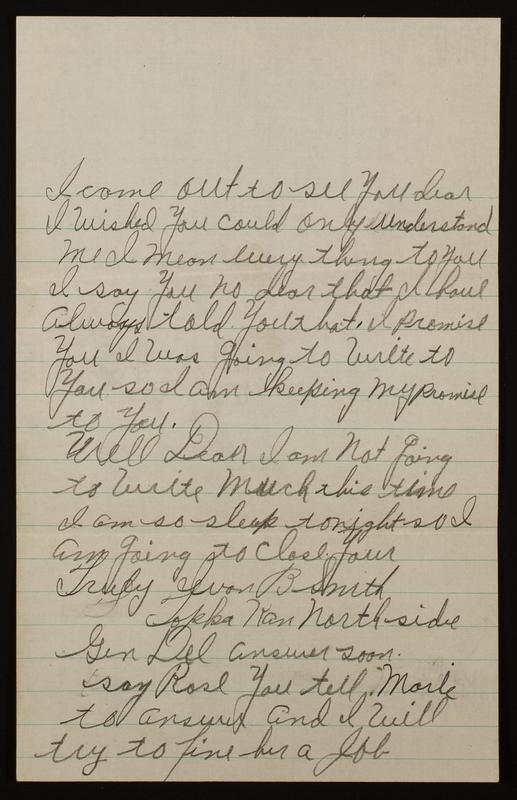 I come out to see You dear
I Wished You could only understand
me I mean every thing to You
I say You no dear that I have
always told You that. I promise
You I Was going to Write to
You so I am keeping My promise
to You.
Well Dear I am Not going
to Write Much this time
I am so sleep tonight so I
am going to Close. Your
Truly Ivon B Smith
Topka Kan North side
Gen Del answer soon.
say Rose You tell, Marie
to answer and I Will
try to fine her a Job